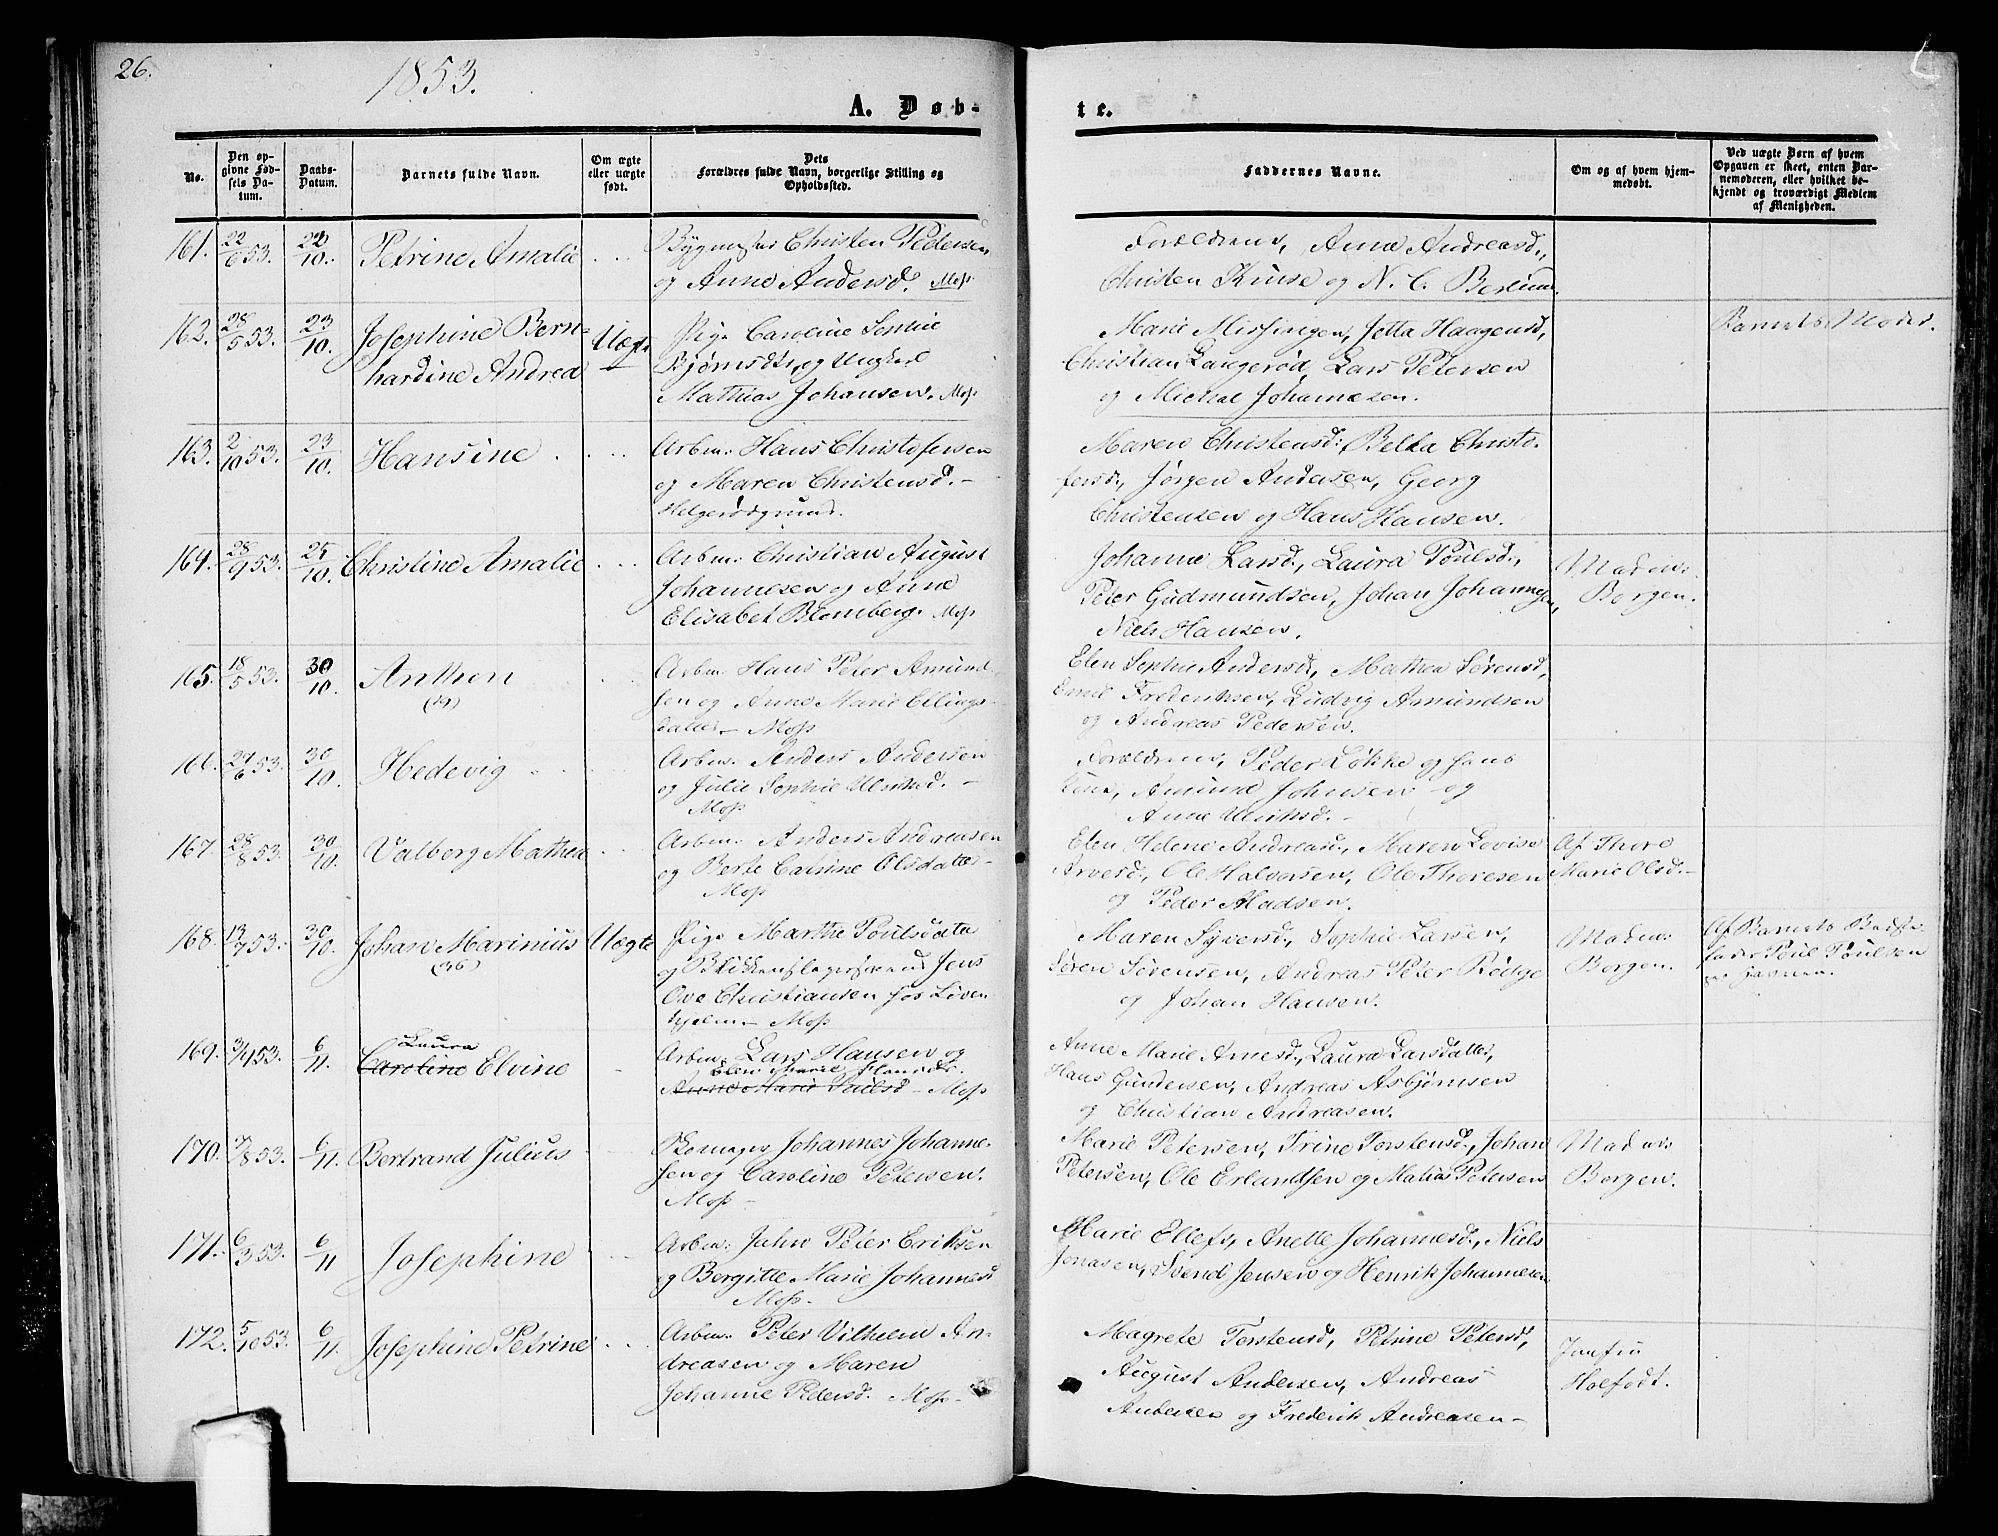 26.
1853.
A. Døb-
te.
No.
Den op-
givne Fød-
sels Da-
tum.
Daabs-
Datum.
Barnets fulde Navn.
Om ægte
eller uægte
født.
Dets
Forældres fulde Navn, borgerlige Stilling og
Opholdssted.
Faddernes Navne.
Om og af hvem hjem-
medøbt.
Ved uægte Børn af hvem
Opgaven er skeet, enten Bar-
nemoderen, eller hvilket be-
kjendt og troværdigt Medlem
af Menigheden.
161. 22/6 53. 22/10. Petrine Amalie
Bygmester Christen Pedersen
og Anne Andersd. Moss
Forældrene, Anne Andreasd.,
Christen Kruse og N. C.
162. 28/5 53. 23/10. Josephine Bern-
hardine Andrea
Uægte
Pige Caroline Sophie
Bjørnsdtr, og Ungkarl
Mathias Johansen. Moss
Marie Missingen, Jetta Haagensd,
Christian Laugerød, Lars Petersen
og Michal Johannesen.
Barnets Moder.
163. 2/10 53. 23/10. Hansine
Arbm. Hans Christofersen
og Maren Christensd. –
Helgerødgrund.
Maren Christensd., Belta Christo-
fersd., Jørgen Andersen, Georg
Christensen og Hans Hansen.
164. 28/9 53. 25/10. Christine Amalie
Arbm. Christian August
Johannesen og Anne
Elisabet Blomberg. Moss
Johanne Larsd., Laura Poulsd.,
Peter Gudmundsen, Johan Johannesen,
Niels Hansen.
Madm:
Borgen.
165. 18/5 53. 30/10. Anthon
(19)
Arbm. Hans Peter Amund-
sen og Anne Marie Ellings-
datter – Moss
Elen Sophie Andersd, Mathea Sørensd,
Emil Frederiksen, Ludvig Amundsen
og Andreas Pedersen.
166. 29/6 53. 30/10. Hedevig
Arbm. Anders Andersen
og Julie Sophie Ulriksd. –
Moss
Forældrene, Peder Løkke og hans
Kone, Amund Johnsen og
Anne Ulriksd. –
167. 28/8 53. 30/10. Valborg Mathea
Arbm. Anders Andreasen
og Berte Catrine Olsdatter
Moss
Elen Helene Andreasd., Maren Lovise
Arvesd, Ole Halvorsen, Ole Thoresen
og Peder Madsen.
Af Thore
Marie Olsd. –
168. 19/7 53. 30/10. Johan Marinius
(36)
Uægte
Pige Marthe Poulsdatter
og Blikkenslagersvend Jens
Ove Christiansen hos Løven-
hjelm – Moss
Maren Syversd, Sophie Larsen,
Søren Sørensen, Andreas Peter Rødge
og Johan Hansen.
Madm:
Borgen.
Af Barnets Bedste-
fader Poul Poulsen
169. 3/9 53. 6/11. Laura
Caroline Elvine
Arbm. Lars Hansen og
Elen Marie
Anne Marie Poulsd – Moss
Anne Marie Arnesd., Laura Larsdatter,
Hans Gundersen, Andreas Asbjørnsen
og Christian Andreasen.
170. 7/8 53. 6/11. Bertrand Julius
Skomager Johannes Johanne-
sen og Caroline Petersen.
Moss –
Marie Petersen, Trine Torstensd., Johan
Petersen, Ole Erlandsen og Matias Petersen
Madm:
Borgen.
171. 6/3 53. 6/11 Josephine
Arbm. John Peter Eriksen
og Bergitte Marie Johannesd
Moss –
Marie Ellefs, Anette Johannesd., Niels
Jonasen, Svend Jensen og Henrik Johannesen
172. 5/10 53. 6/11. Josephine Petrine
Arbm. Peter Vilhelm An-
dreasen og Maren
Johanne Pedersd. Moss –
Magrete Torstensd, Petrine Petersd,
August Andersen, Andreas
Andersen og Frederik Andreasen –
Jomfru
Holfodt.